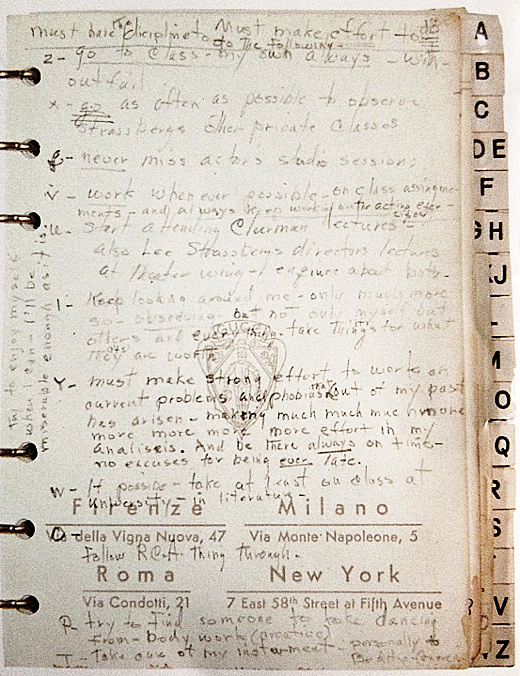 must have dicipline to Must make effort to do
do the following -
z - go to class - my own always - with-
out fail
x - go as often as possible to observe
Strassberg's other private classes
g - never miss actors studio sessions
v - work whenever possible - on class assignme-
ments - and always keep working on the acting exer-
cises
u - Start attending Clurman lectures -
also Lee Strassbergs directors lectures
at theater wing - enquire about both -
l - Keep looking around me - only much more
so - observing - but not only myself but
others and everything - take things for what
they are worth
y - must make strong effort to work on
current problems and phobias that out of my past
has arisen - making much much much more
more more more more effort in my
analisis. And be there always on time -
no excuses for being ever late.
w - If possible - take at least on class at
university - in literature -
o -
follow RCA thing through.
p - try to find someone to take dancing
from - body work (creative)
T - Take care of my instrument - personally &
Try to enjoy myself
when I can - I'll be
miserable enough as it is
GUCCI
Firenze
Milano
Via della Vigna Nuova, 47
Via Monte Napoleone, 5
Roma
New York
Via Condotti, 21
7 East 58th Street at Fifth Avenue
A
B
C
DE
F
GH
KJ
L
M
O
Q
R
S
V
Z